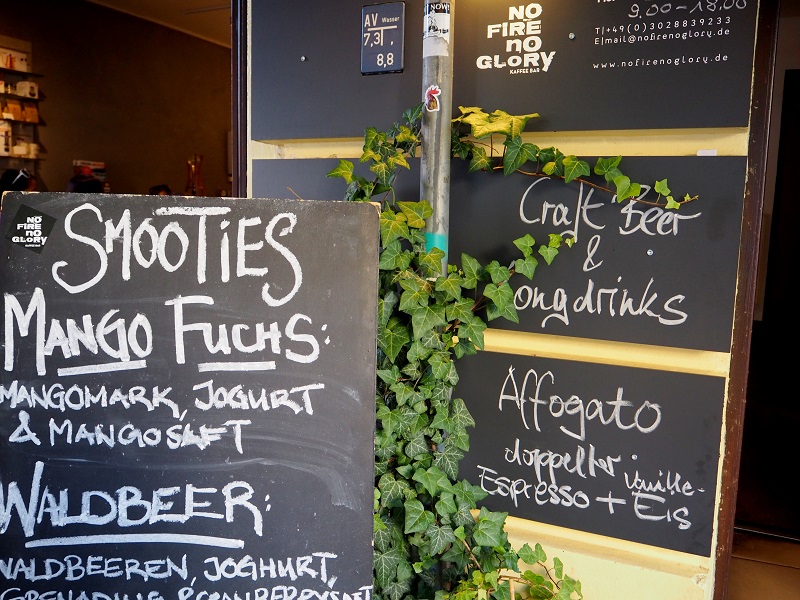 NO
FIRE
NO
GLORY
KAFFEE BAR
SMOOTIES
MANGO FUCHS:
MANGOMARK, JOGURT
& MANGOSAFT
WALDBEER:
WALDBEEREN, JOGHURT,
GRENADINE & CRANBERRYSAFT
AV Wasser
7,3
8,8
NOW!
NO
FIRE
NO
GLORY
KAFFEE BAR
9.00-18.00
T|+49(0)3028839233
E|mail@nofirenoglory.de
www.nofirenoglory.de
Craft Beer
&
ongdrinks
Affogato
doppelter
Espresso + Vanille-
Eis